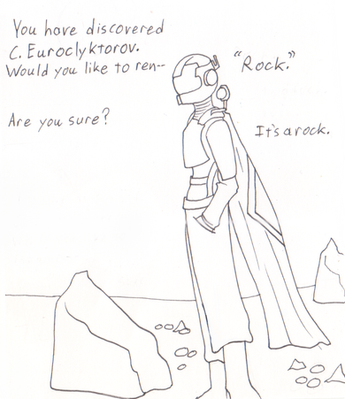 You have discovered
C. Euroclyktorov.
Would you like to ren--
"Rock."
Are you sure?
It's a rock.